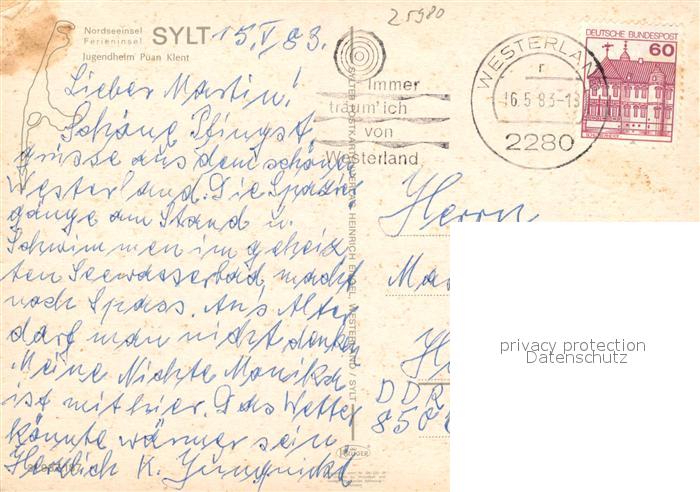 25980
Nordseeinsel
Ferieninsel SYLT 15.V.83.
Jugendheim Puan Klent
Lieber Martin!
Schöne Pfingst
grüsse aus dem schönen
Westerland. Die Spazier
gänge am Stand u.
Schwimmen im geheiz
ten Seewasserbad macht
noch Spass. An's Alter
darf man nicht denken
Meine Nichte Monika
ist mit hier. Das Wetter
könnte wärmer sein
Herzlich K.
Immer
träum' ich
von
Westerland
WESTERLAN
16.5.83-13
2280
DEUTSCHE BUNDESPOST
60
HEINRICH ENGEL · WESTERLAND / SYLT
KRÜGER
Herrn
Ma
H
DDR
850
privacy protection
Datenschutz